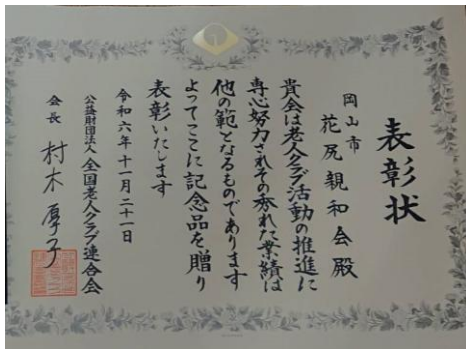 表彰状
岡山市
花尻親和会殿
貴会は老人クラブ活動の推進に
専心努力されその秀れた業績は
他の範となるものであります
よってここに記念品を贈り
表彰いたします
令和六年十一月二十一日
公益財団法人 全国老人クラブ連合会
会長 村木厚子